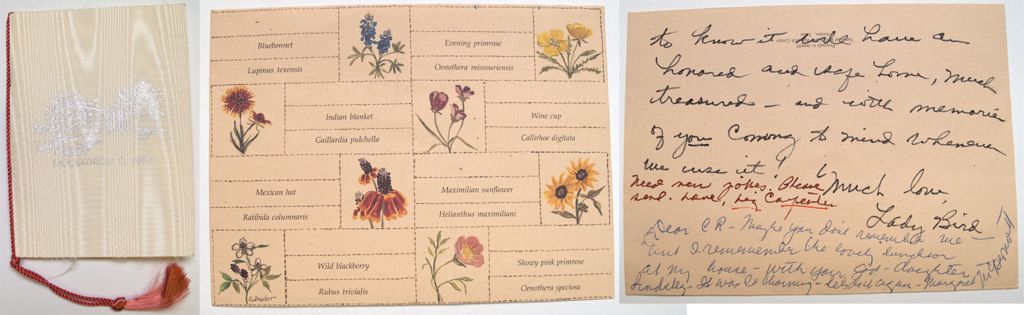 DECEMBER 9, 19
Bluebonnet
Lupinus texensis
Evening primrose
Oenothera missouriensis
Indian blanket
Gaillardia pulchella
Wine cup
Callirhoe digitata
Mexican hat
Ratibida columnaris
Maximilian sunflower
Helianthus maximiliani
Wild blackberry
Rubus trivialis
Showy pink primrose
Oenothera speciosa
to know it will have an
honored and safe home, much
treasured - and with memories
of you coming to mind whenever
we use it! Much love,
Lady Bird
Need new jokes. Please
send. Love, Liz Carpenter
Dear CR - Maybe you don't remember me -
but I remember the lovely luncheon
at my house - with your God-daughter
Lindsley - It was so charming - let's do it again - Margaret